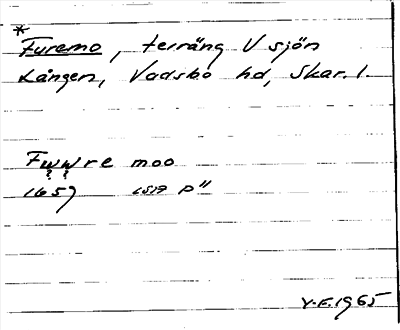 *
Furemo, terräng V sjön
Lången, Vadsbo hd, Skar. l.
Fwwre moo
? ?
1659 LSA P"
V.E. 1965